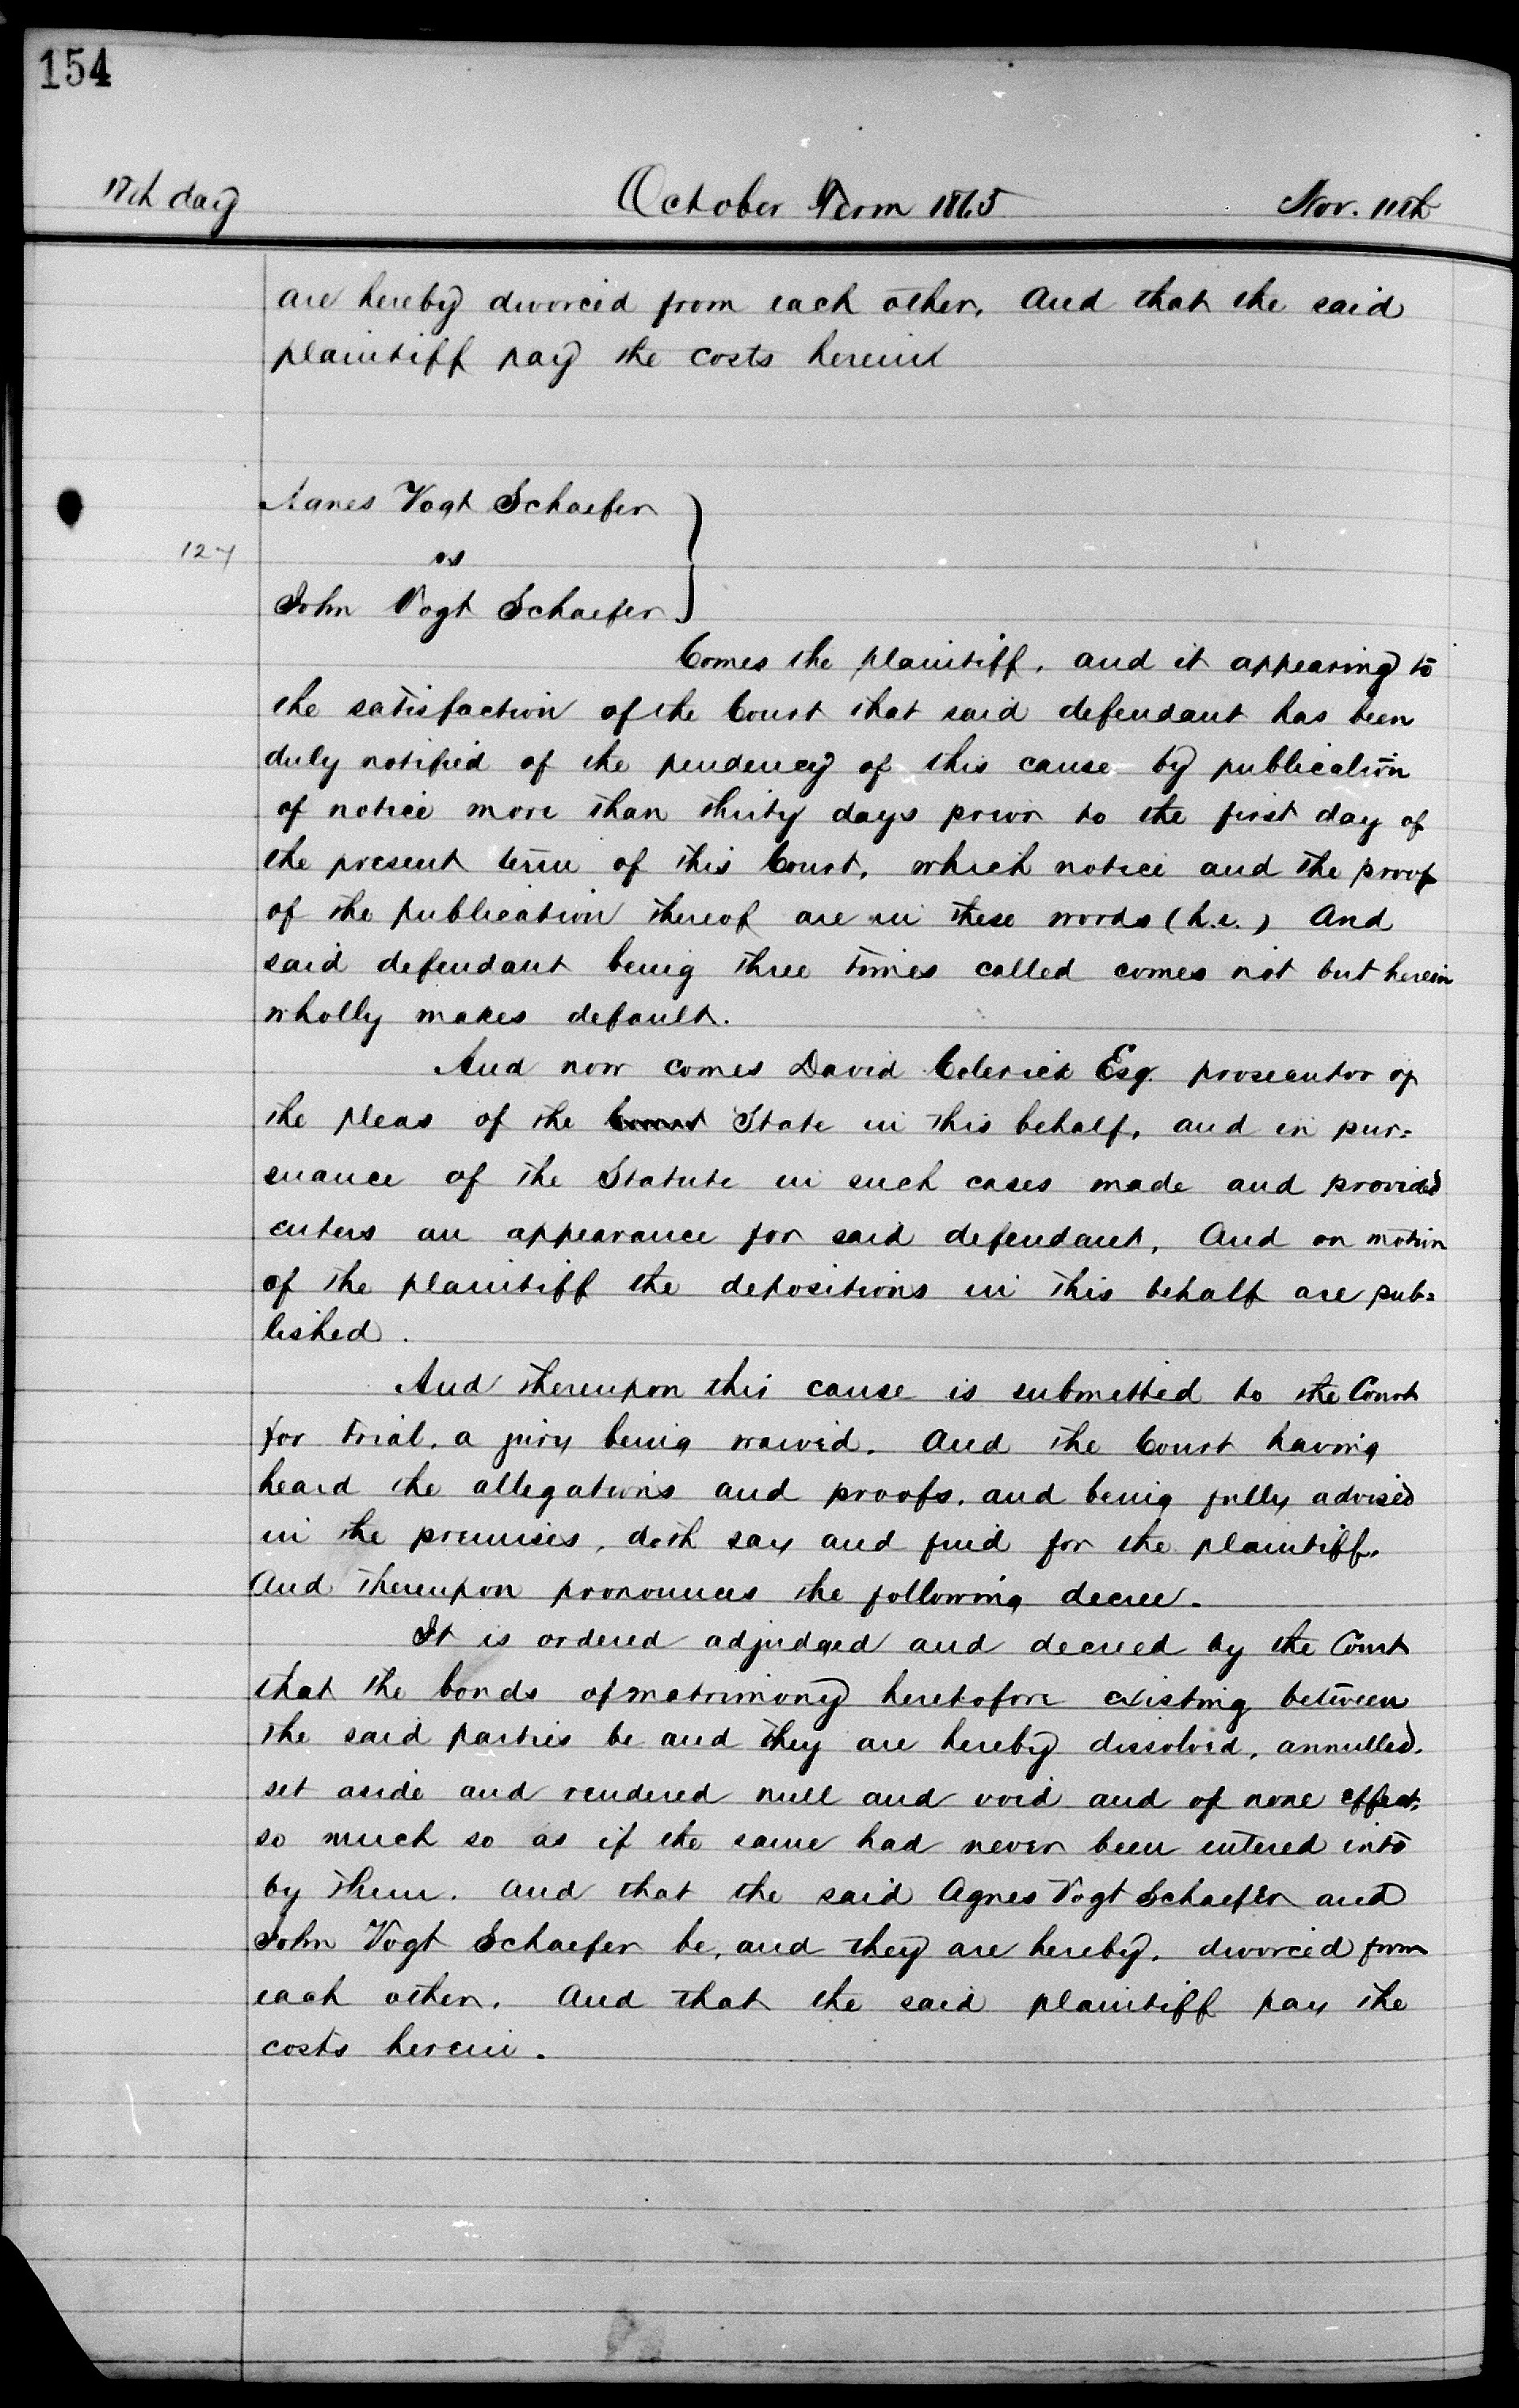 154
18th day October Term 1865 Nov. 11th
are hereby divorced from each other. And that the said
plaintiff pay the costs herein
Agnes Vogt Schaefer
vs
127
John Vogt Schaefer
Comes the plaintiff, and it appearing to
the satisfaction of the Court that said defendant has been
duly notified of the pendency of this cause by publication
of notice more than thirty days prior to the first day of
the present term of this Court, which notice and the proof
of the publication thereof are in these words (h.i.) And
said defendant being three times called comes not but herein
wholly makes default.
And now comes David Colerick Esq. prosecutor of
the pleas of the Court State in this behalf, and in pur=
suance of the Statute in such cases made and provided
enters an appearance for said defendant. And on motion
of the plaintiff the depositions in this behalf are pub=
lished.
And thereupon this cause is submitted to the Court
for trial, a jury being waived. And the Court having
heard the allegations and proofs, and being fully advised
in the premises, doth say and find for the plaintiff.
And thereupon pronounces the following decree.
It is ordered adjudged and decreed by the Court
that the bonds of matrimony heretofore existing between
the said parties be and they are hereby dissolved, annulled,
set aside and rendered null and void and of none effect,
so much so as if the same had never been entered into
by them. And that the said Agnes Vogt Schaefer and
John Vogt Schaefer be, and they are hereby, divorced from
each other. And that the said plaintiff pay the
costs herein.